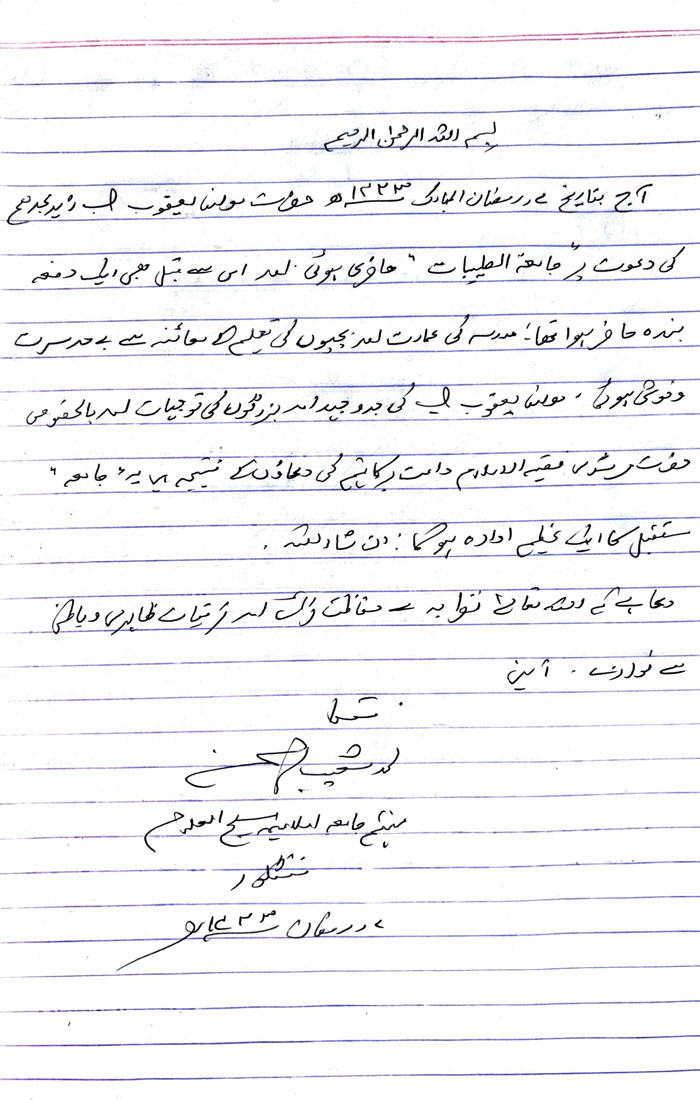 بسم اللہ الرحمٰن الرحیم
آج بتاریخ ۷ ر رمضان المبارک ۱۴۳۳ھ حضرت مولانا یعقوب صاحب زید مجدھم
کی دعوت پر "جامعۃ الطیبات" حاضری ہوئی اور اس سے قبل بھی ایک دفعہ
بندہ حاضر ہوا تھا؛ مدرسہ کی عمارت اور بچیوں کی تعلیم کا معائنہ سے بے حد مسرت
وخوشی ہوئی، مولانا یعقوب صاحب کی جدوجہد اور بزرگوں کی توجہات اور بالخصوص
حضرت مرشدی فقیہ الاسلام دامت برکاتہم کی دعاؤں کے نتیجہ میں یہ "جامعہ"
مستقبل کا ایک عظیم ادارہ ہوگا؛ ان شاء اللہ۔
دعا ہے کہ اللہ تعالیٰ حفاظت فرمائے اور ترقیات ظاہری وباطنی
سے نوازے۔ آمین
فقط
محمد شعیب اللہ
مہتمم جامعہ اسلامیہ مسیح العلوم
بنگلور
۷ ر رمضان ۱۴۳۳ھ